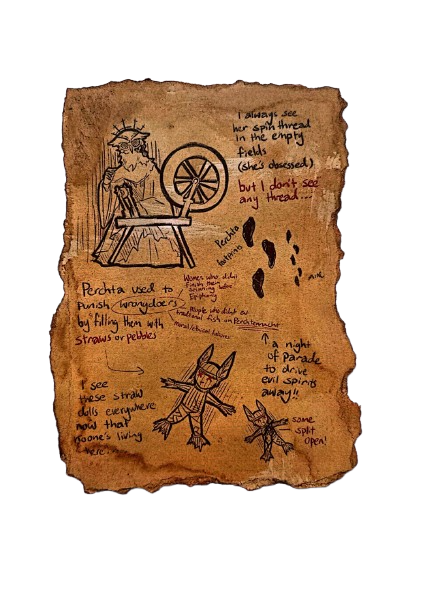 I always see
her spin thread
in the empty
fields
(she's obsessed)
but I don't see
any thread...
Perchta
footprints
Perchta used to
punish wrongdoers
by filling them with
straws or pebbles
Women who didn't
finish their
spinning before
Epiphany
people who didn't eat
traditional fish on Perchtennacht
↑ a night
of parade
to drive
evil spirits
away!!
I see
these straw
dolls everywhere
now that
noone's living
here.
some
split
open!